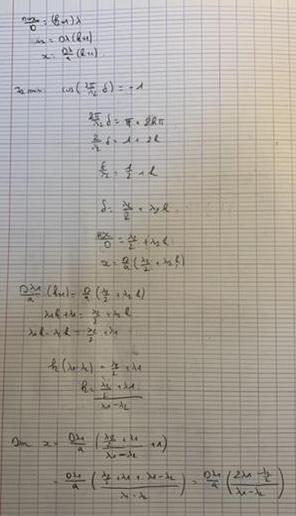 ax/D = (k+1) λ
ax = Dλ (k+1)
x = Dλ/a (k+1)
min cos(2π/λ₂ δ) = -1
2π/λ₂ δ = π + 2kπ
2/λ₂ δ = 1 + 2k
δ/λ₂ = 1/2 + k
δ = λ₂/2 + λ₂k
ax/D = λ₂/2 + λ₂k
x = D/a (λ₂/2 + λ₂k)
Dλ₁/a (k+1) = D/a (λ₂/2 + λ₂k)
λ₁k + λ₁ = λ₂/2 + λ₂k
λ₁k - λ₂k = λ₂/2 + λ₁
k(λ₁-λ₂) = λ₂/2 + λ₁
k = (λ₂/2 + λ₁)/(λ₁-λ₂)
x = Dλ₁/a ((λ₂/2 + λ₁)/(λ₁-λ₂) + 1)
= Dλ₁/a ((λ₂/2 + λ₁ + λ₁-λ₂)/(λ₁-λ₂)) = Dλ₁/a ((2λ₁ - λ₂/2)/(λ₁-λ₂))